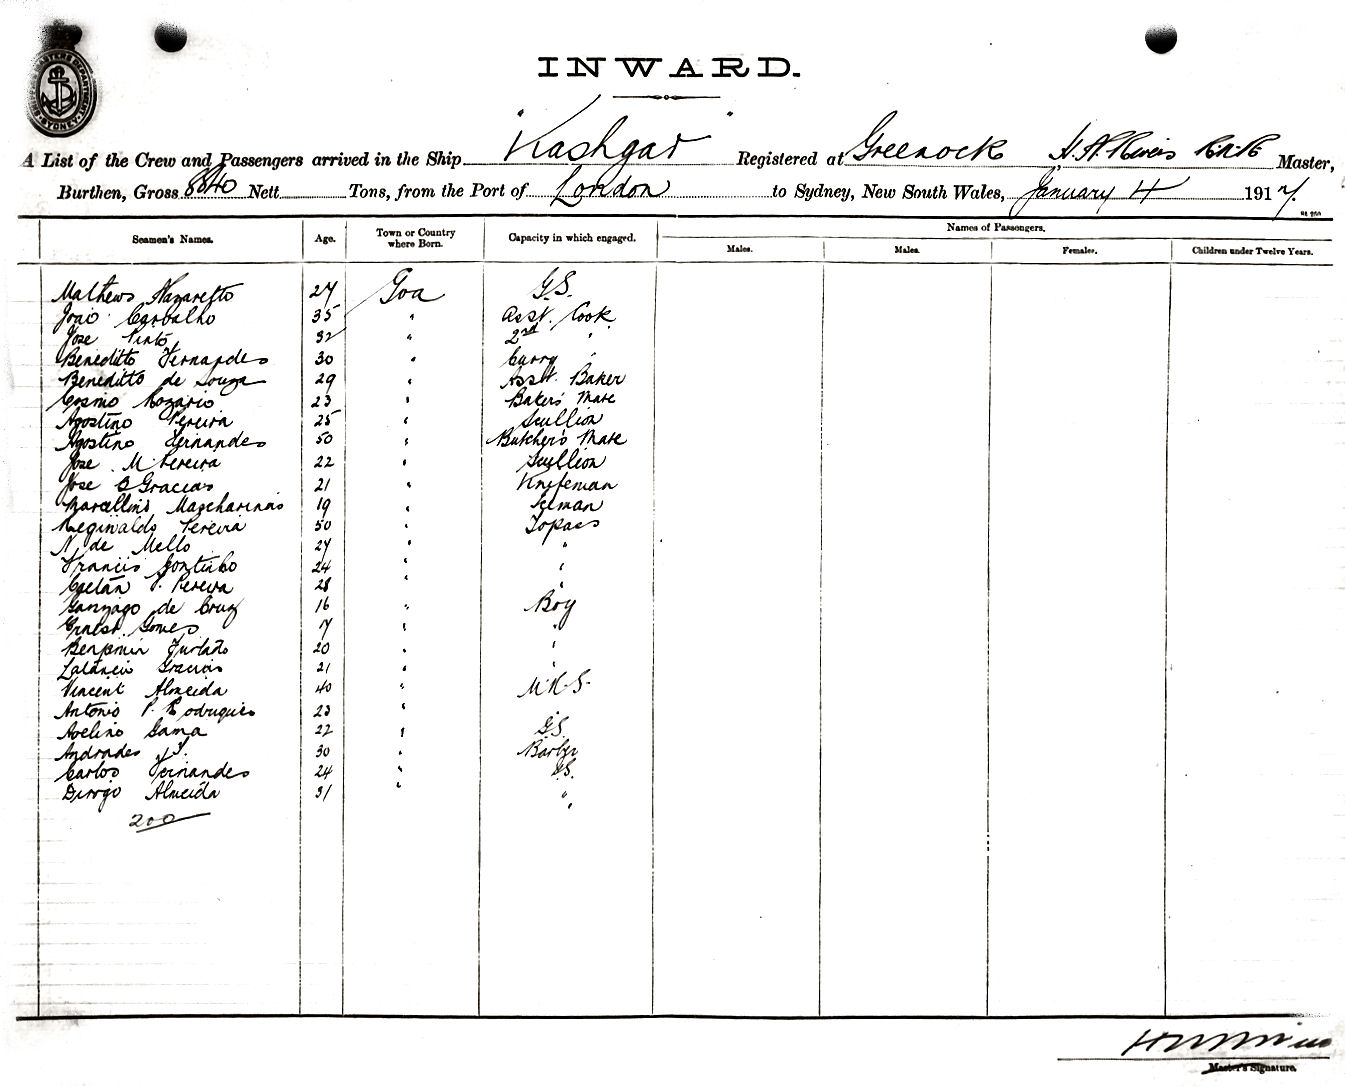 SHIPPING MASTERS DEPARTMENT SYDNEY
INWARD.
A List of the Crew and Passengers arrived in the Ship "Kashgar" Registered at Greenock H. A. Rivers R.N.R Master,
Burthen, Gross 8840 Nett Tons, from the Port of London to Sydney, New South Wales, January 4 1917.
Seamen's Names. Age. Town or Country where Born. Capacity in which engaged. Names of Passengers.
Males. Males. Females. Children under Twelve Years.
Mathews Nazaretto 27 Goa G.S.
Joao Carbalho 35 " Asst. Cook
Jose Pinto 32 " 2nd "
Beneditto Fernandes 30 " Curry "
Beneditto de Souza 29 " Asst. Baker
Cosmo Rozario 23 " Baker's Mate
Agostino Pereira 25 " Scullion
Agostino Fernandes 50 " Butcher's Mate
Jose M Pereira 22 " Scullion
Jose B Gracias 21 " Knifeman
Marcellino 19 " 
Reginaldo Pereira 50 " Topass
N. de Mello 27 " "
Francis 24 " "
Caetan P. Pereira 28 " "
de Cruz 16 " Boy
Ernest Gomes " "
Benjamin Furtado 20 " "
Gracias 21 " "
Vincent Almeida 40 " M.R.S.
Antonio P. Rodrigues 23 " "
Avelino Gama 22 " G.S.
Andrades J. 30 " Barber
Carlos Fernandes 24 " G.S.
Almeida 31 " "
200
Master's Signature.